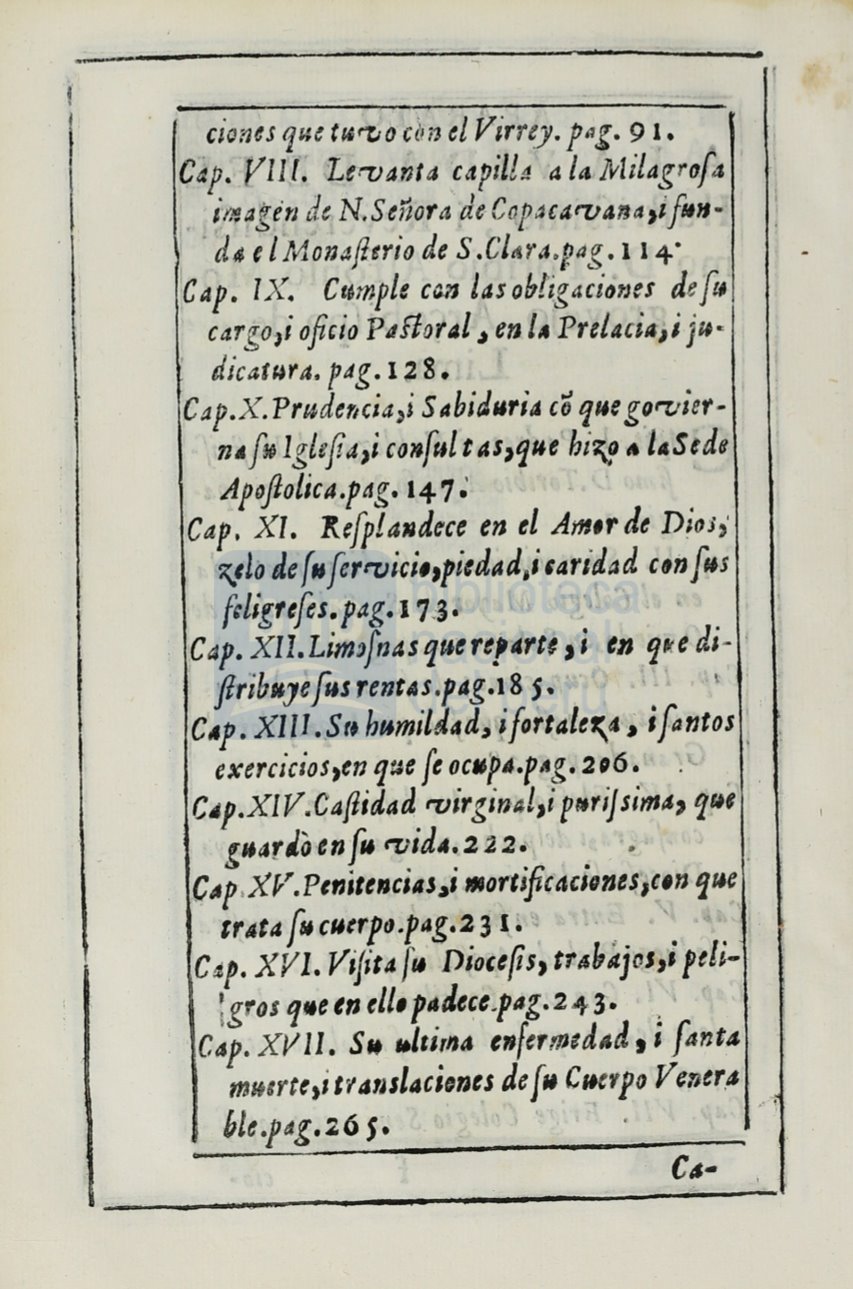 ciones que tuvo con el Virrey. pag. 91.
Cap. VIII. Levanta capilla a la Milagroſa
imagen de N. Señora de Copacavana, i fun-
da el Monaſterio de S. Clara. pag. 114.
Cap. IX. Cumple con las obligaciones de ſu
cargo, i oficio Paſtoral, en la Prelacia, i ju-
dicatura. pag. 128.
Cap. X. Prudencia, i Sabiduria cõ que govier-
na ſu Igleſia, i conſultas, que hizo a la Sede
Apoſtolica. pag. 147.
Cap. XI. Reſplandece en el Amor de Dios,
zelo de ſu ſervicio, piedad, i caridad con ſus
feligreſes. pag. 173.
Cap. XII. Limoſnas que reparte, i en que di-
ſtribuye ſus rentas. pag. 185.
Cap. XIII. Su humildad, i fortaleza, i ſantos
exercicios, en que ſe ocupa. pag. 206.
Cap. XIV. Caſtidad virginal, i puriſsima, que
guardò en ſu vida. 222.
Cap XV. Penitencias, i mortificaciones, con que
trata ſu cuerpo. pag. 231.
Cap. XVI. Viſita ſu Dioceſis, trabajos, i peli-
gros que en ello padece. pag. 243.
Cap. XVII. Su ultima enfermedad, i ſanta
muerte, i translaciones de ſu Cuerpo Venera
ble. pag. 265.
Ca-